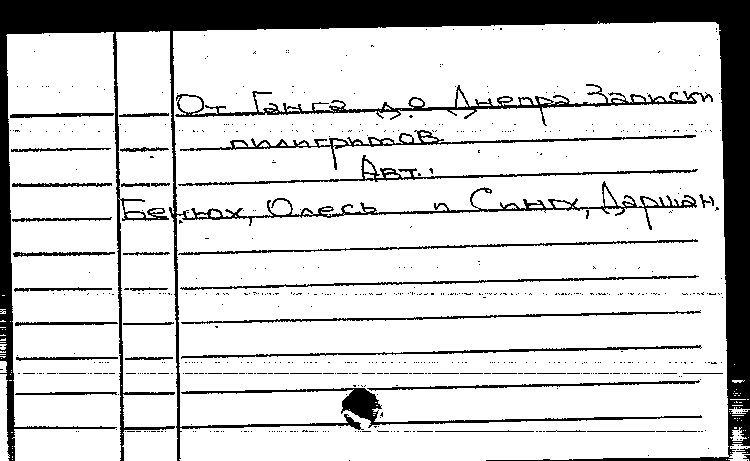 От Ганга до Днепра. Записки
пилигримов.
Авт.:
Бенюх, Олесь и Сингх, Даршан.